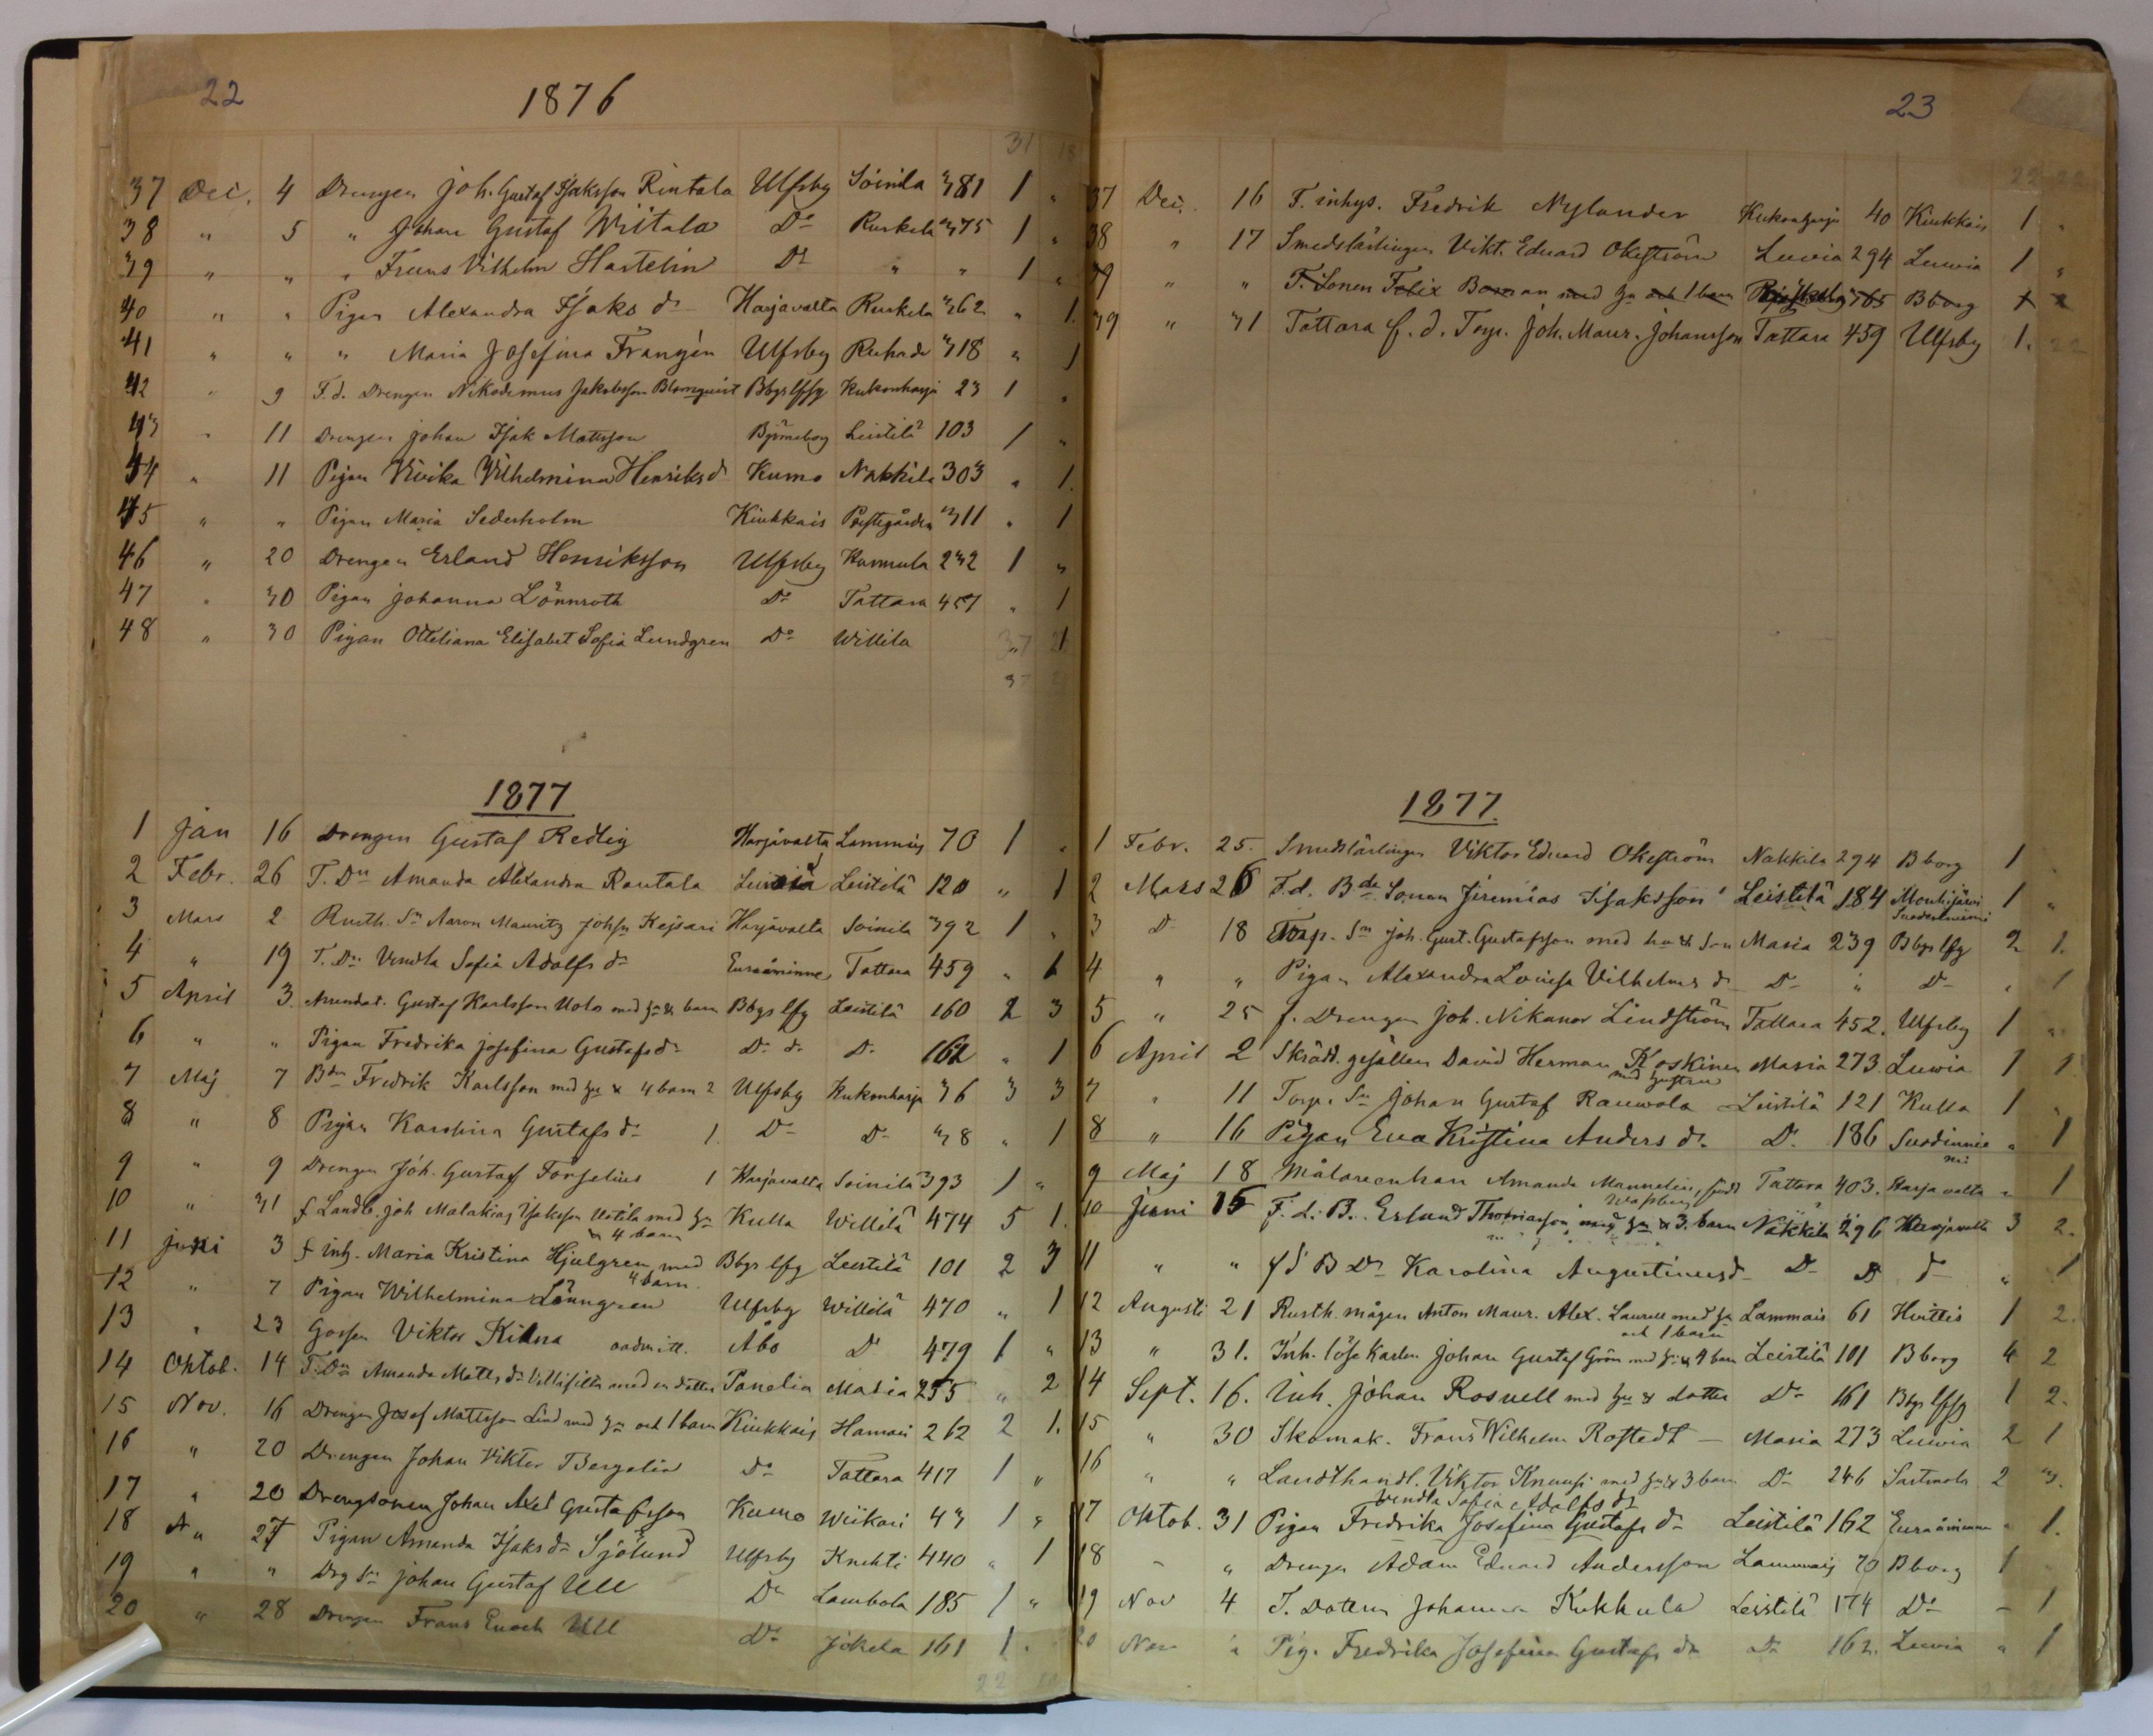 22
1876
31 18
37 Dec. 4 Drengen Joh. Gustaf Isaksson Rintala Ulfsby Soinila 381 1 "
38 " 5 " Johan Gustaf Wiitala Do Ruskela 375 1 "
39 " " " Frans Vilhelm Hastelin Do " " 1 "
40 " " Pigan Alexandra Isaksdr Harjavalta Ruskela 362 " 1.
41 " " " Maria Josefina Frangén Ulfsby Ruhade 318 " 1
42 " 9 F.d. Drengen Nikodemus Jakobsson Blomquist Bbgs lfsg Kukonharja 23 1 "
43 " 11 Drengen Johan Isak Matsson Björneborg Leistilä 103 1 "
44 " 11 Pigan Vivika Vilhelmina Henriksd Kumo Nakkila 303 " 1.
45 " " Pigan Maria Sederholm Kiukkais Prestgården 311 " 1
46 " 20 Drengen Erland Henriksson Ulfsby Hammula 232 1 "
47 " 30 Pigan Johanna Lönnroth Do Tattara 457 " 1
48 " 30 Pigan Otteliana Elisabet Sofia Lundgren Do Willila " 1
37
1877
1 Jan 16 Drengen Gustaf Redlig Harjavalta Lammais 70 1 "
2 Febr. 26 T. Dn Amanda Alexandra Rantala Luvia Leistilä 120 " 1
3 Mars 2 Rusth. Sn Aaron Mauritz Johsn Kejsari Harjavalta Soinila 392 1 "
4 " 19 T. Dn Vendla Sofia Adolfs dr Euraåminne Tattara 459 " 1
5 April 3. Arrendat. Gustaf Karlsson Uoto med hu & barn Bbgs lfg Leistilä 160 2 3
6 " " Pigan Fredrika Josefina Gustafsdr Do do Do 162 " 1
7 Maj 7 Bdn Fredrik Karlsson med hu & 4 barn 2 Ulfsby Kukonharja 36 3 3
8 " 8 Pigan Karolina Gustafs dr 1. Do Do 38 " 1
9 " 9 Drengen Joh. Gustaf Forselius 1 Harjavalta Soinila 393 1 "
10 " 31 f Landb. Joh Malakias Isaksson Uotila med hu Kulla Willilä 474 5 1.
& 4 barn
11 Juni 3 f inh. Maria Kristina Hjulgren med Bbgs lfg Leistilä 101 2 3
4 barn
12 " 7 Pigan Wilhelmina Lönngren Ulfsby Willilä 470 " 1
13 " 23 Gossen Viktor Åbo Do 479 1 "
14 Oktob. 14 T. Dn Amanda Matts dr med en dotter Panelia Masia 255 " 2
15 Nov. 16 Drengen Josef Mattsson Lind med hu och 1 barn Kiukkais Hamari 262 2 1.
16 " 20 Drengen Johan Viktor Bergelin Do Tattara 417 1 "
17 " 20 Drengsonen Johan Axel Gustafsson Kumo Wiikari 43 1 "
18 " 27 Pigan Amanda Isaksdr Sjölund Ulfsby Knehti 440 " 1
19 " " Drg Sn Johan Gustaf Ull Do Lambola 185 1 "
20 " 28 Drengen Frans Enoch Ull Do Jokela 161 1 "
22
23
37 Dec. 16 F. inhys. Fredrik Nylander Kukonharja 40 Kiukkais 1 "
38 " 17 Smedslärlingen Vikt. Eduard Okeström Luvia 294 Luvia 1 "
39 " " T. Sonen Felix Boman med hu och 1 barn 765 Bborg 1 2
39 " 31 Tattara f. d. Torp. Joh. Maur. Johansson Tattara 459 Ulfsby 1.
22
1877.
1 Febr. 25. Smedslärlingen Viktor Eduard Okeström Nakkila 294 Bborg 1
2 Mars 26 F.d. Bde Sonen Jeremias Isaksson Leistilä 184 Mouhijärvi 1 "
Suodenniemi
3 Do 18 Torp. Sn Joh. Gust. Gustafsson med hu & son Masia 239 Bbgs lfg 2 1.
4 " " Pigan Alexandra Lovisa Vilhelms dr Do " Do " 1
5 " 25 f. Drengen Joh. Nikanor Lindström Tattara 452. Ulfsby 1 "
6 April 2 Skrädd. gesällen David Herman Koskinen Masia 273 Luvia 1 1
med hustru
7 " 11 Torp. Sn Johan Gustaf Rauwola Leistilä 121 Kulla 1 "
8 " 16 Pigan Eva Kristina Anders dr Do 186 Suodinnie " 1
mi
9 Maj 18 Målareenkan Amanda Mannelin, född Tattara 403. Harjavalta " 1
10 Juni 15 F. d. B. Erland Thomasson med hu & 3. barn Nakkila 296 Harjavalta 3 2.
11 " " fd B Dr Karolina Augustinusdr Do Do Do " 1
12 Augusti 21 Rusth. mågen Anton Maur. Alex. Laurell med hu Lammais 61 Hvittis 1 2.
och 1 barn
13 " 31. Inh. löse karlen Johan Gustaf Grön med hu & 4 barn Leistilä 101 Bborg 4 2
14 Sept. 16. Inh. Johan Rosnell med hu & dotter Do 161 Bbgs lfsg 1 2.
15 " 30 Skomak. Frans Wilhelm Rostedt — Masia 273 Luvia 2 1
16 " " Landthandl. Viktor Knuusi med hu & 3 barn Do 246 Sastmola 2 3.
Vendla Sofia Adolfsdr
17 Oktob. 31 Pigan Fredrika Josefina Gustafs dr Leistilä 162 Euraåminne " 1.
18 " " Drengen Adam Eduard Andersson Lammais 70 Bborg 1
19 Nov 4 T. Dottern Johanna Kukkula Leistilä 174 Do – 1
20 Nov " Pig. Fredrika Josefina Gustafs dr Do 162. Luvia " 1